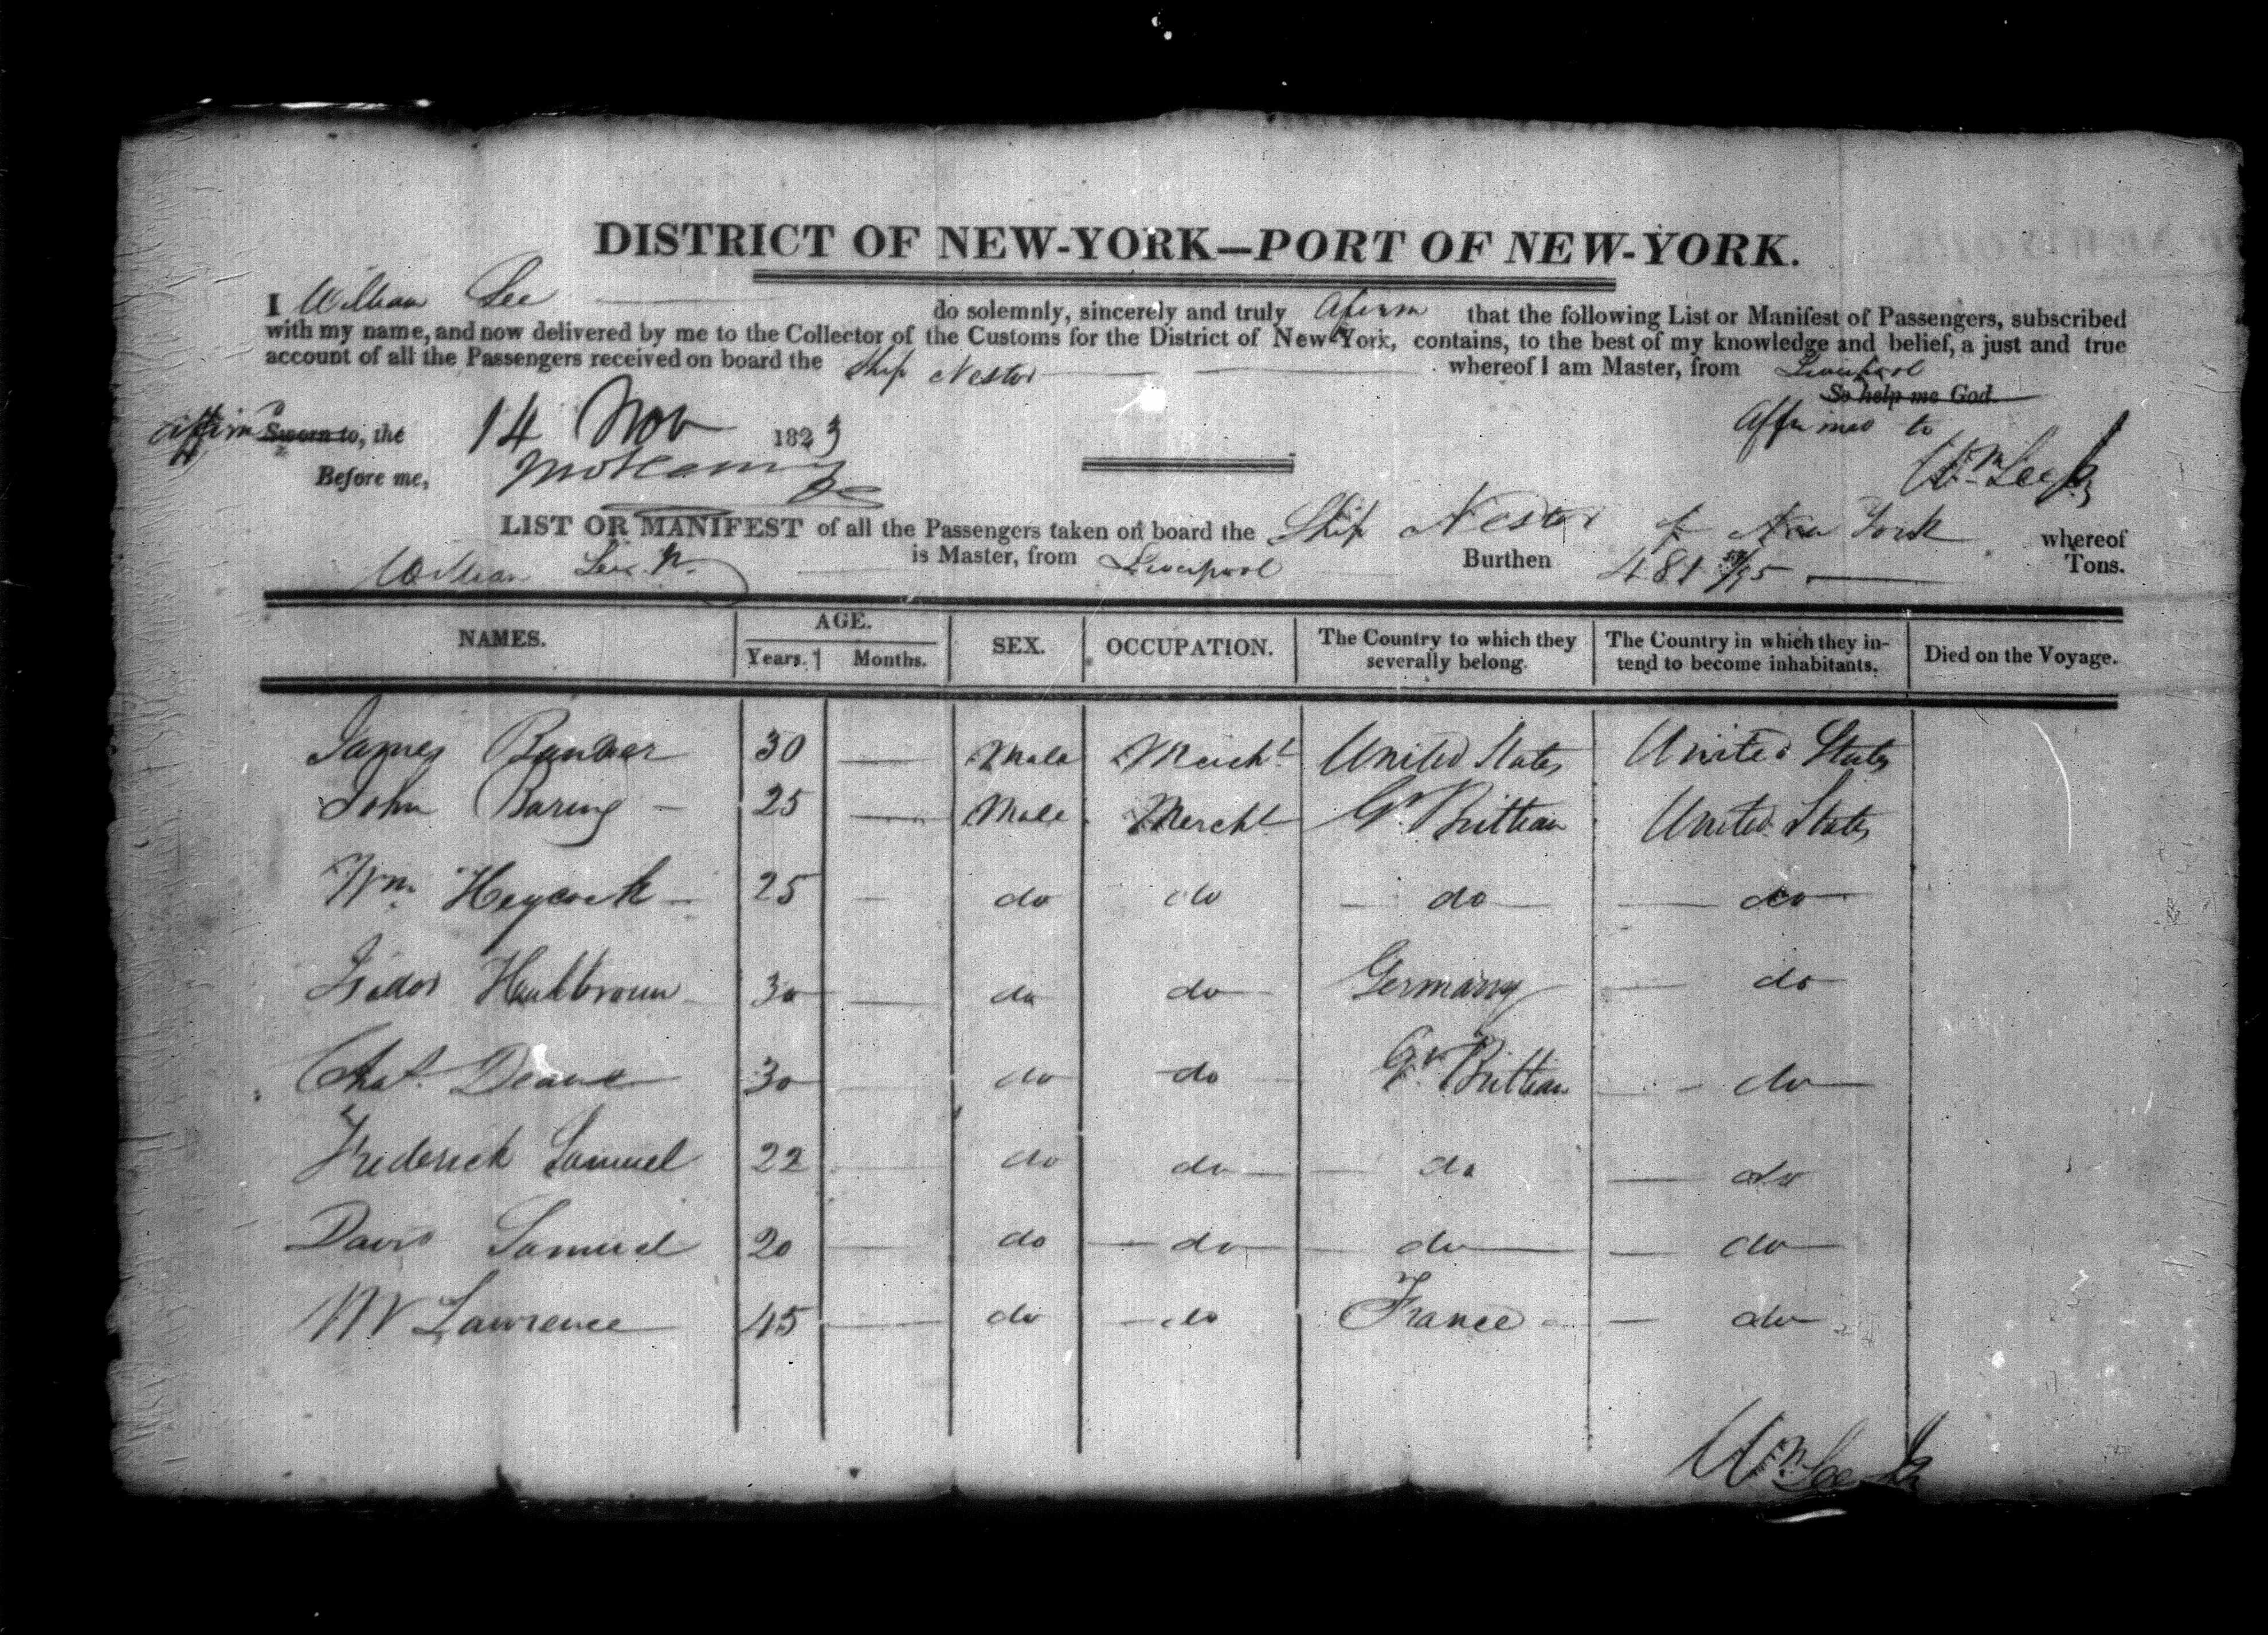 DISTRICT OF NEW-YORK—PORT OF NEW-YORK.
I William Lee do solemnly, sincerely and truly Afirm that the following List or Manifest of Passengers, subscribed
with my name, and now delivered by me to the Collector of the Customs for the District of New York, contains, to the best of my knowledge and belief, a just and true
account of all the Passengers received on board the Ship Nestor whereof I am Master, from Liverpool
So help me God
affirm Sworn to, the 14 Nov 1823 Affirmed to
Before me, Wm Lee Jr
LIST OR MANIFEST of all the Passengers taken on board the Ship Nestor of New York whereof
William Lee Jr. is Master, from Liverpool Burthen 481 /95 Tons.
NAMES. AGE. Years. Months. SEX. OCCUPATION. The Country to which they severally belong. The Country in which they intend to become inhabitants. Died on the Voyage.
James Bunker 30 — Male Mercht United States United States
John Baring — 25 — Male Mercht Gr Brittian United States
Wm. Heycock — 25 — do do — do — — do —
Isador 30 — do do Germany — do
Chas. Deane 30 — do do Gr Brittian — do —
Frederick Samuel 22 — do do — do — do
David Samuel 20 — do — do — — do — — do —
W Lawrence 45 — do — do France — do
Wm Lee Jr